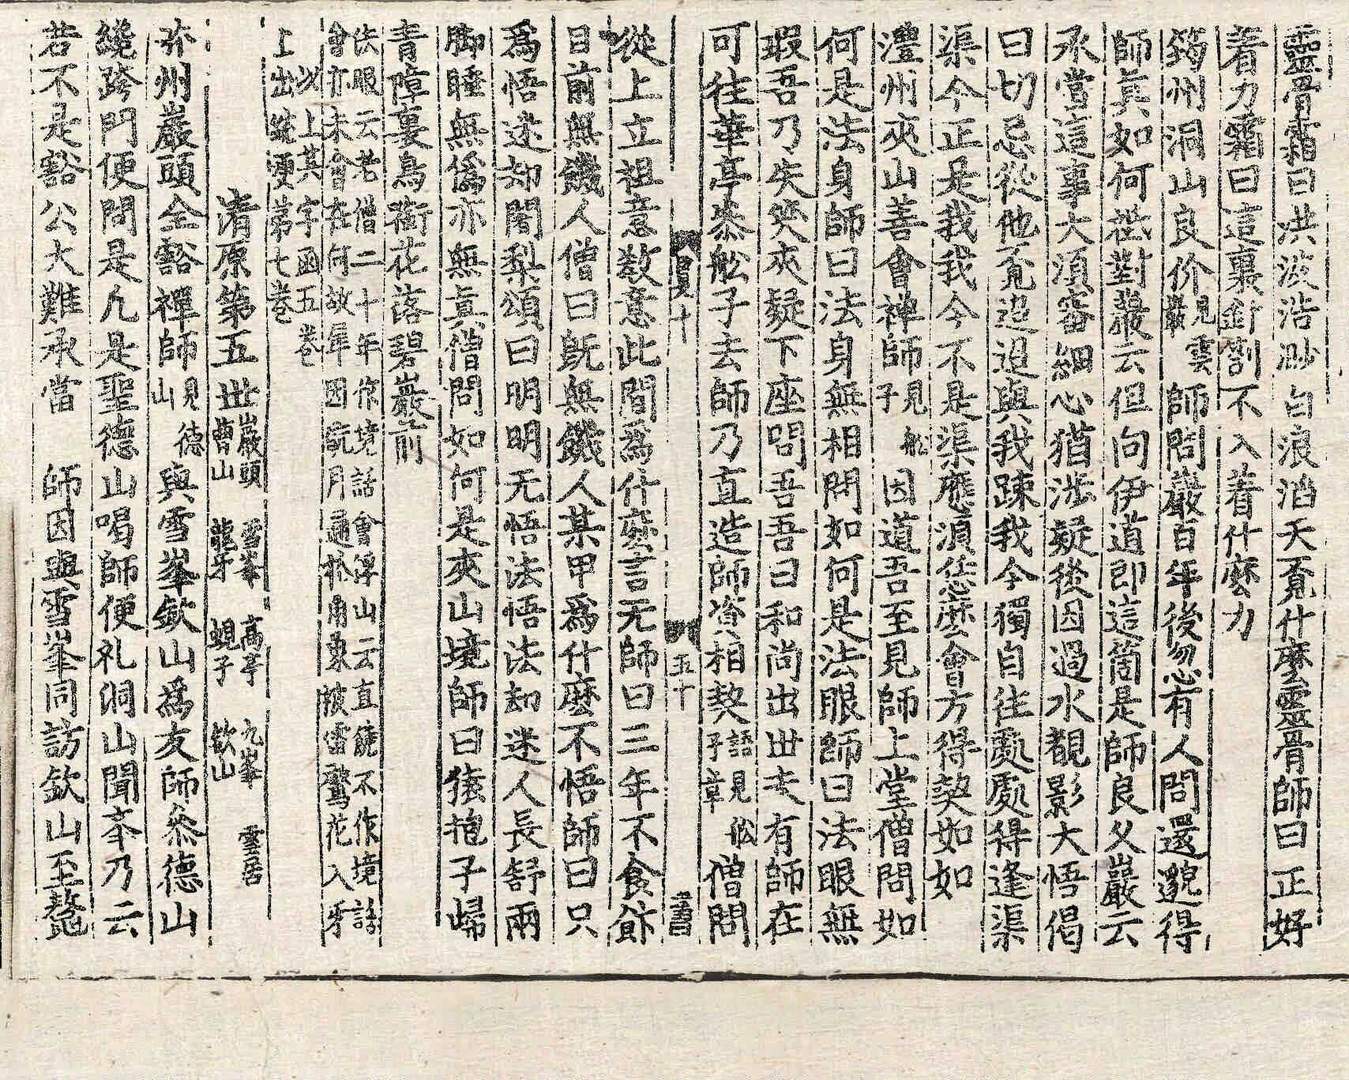 靈骨霜曰洪波浩渺白浪滔天覔什麽靈骨師曰正好
着力霜曰這裏針劄不入着什麽力
筠州洞山良价見雲巖 師問巖百年後忽有人問還邈得
師眞如何祗對巖云但向伊道即這箇是師良久巖云
承當這事大湏審細心猶渉疑後因過水覩影大悟偈
曰切忌從他覔迢迢與我踈我今獨自往處處得逢渠
渠今正是我我今不是渠應湏恁麽會方得契如如
澧州夾山善會禅師見舩子 因道吾至見師上堂僧問如
何是法身師曰法身無相問如何是法眼師曰法眼無
瑕吾乃失笑夾疑下座問吾吾曰和尚出世未有師在
可往華亭叅舩子去師乃直造師資相契語見舩子章 僧問
五十
從上立祖意敎意此間爲什麽言无師曰三年不食飰
目前無饑人僧曰旣無饑人某甲爲什麽不悟師曰只
爲悟迷却闍梨頌曰明明无悟法悟法却迷人長舒兩
脚睡無僞亦無眞僧問如何是夾山境師曰猿抱子歸
青嶂裏鳥銜花落碧巖前
法眼云老僧二十年作境話會浮山云直饒不作境話
會亦未會在何故犀因翫月 花入牙
以上其字函五卷
上出 第七卷
淸原第五世 巖頭 雪峯 高亭 九峯 雲居
曹山 龍牙 蜆子 欽山
州巖頭全豁禪師見德山 與雪峯欽山爲友師叅德山
纔跨門便問是凡是聖德山喝師便礼洞山聞乃云
若不是豁公大難承當 師因與雪峯同訪欽山至鼇